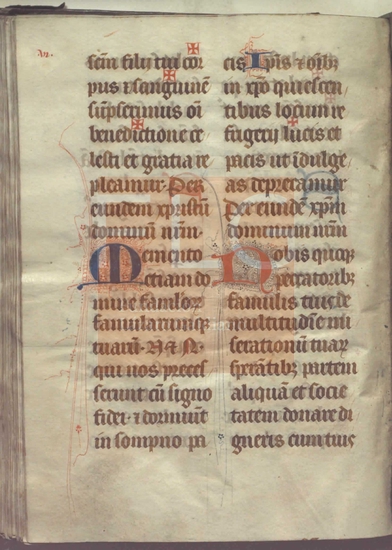 scm̄ filij tui cor
pus ⁊ sanguinē
sūpserimus oı̄
benedictione ce
lesti et gratia re
pleamur. Per
eundem xpristū
dominū nr̄m.
Memento
etiam do
mine famlor̄
famularumq̄
tuarū. N et N.
qui nos preces
serunt cū signo
fidei ⁊ dormiūt
in sompno pa
cis Ipis ⁊ oı̄bꝫ
in xp̄o quiescen
tibus locum re
frigerij lucis et
pacis ut īdulge
as deprecamur
Per eundē xp̄m
dominum nr̄m
Nobis quoqꝫ
peccatoribꝫ
famulis tuis de
multitudīe mi
serationū tuaꝝ
sperātibꝫ partem
aliquā et socie
tatem donare di
gneris cum tuis